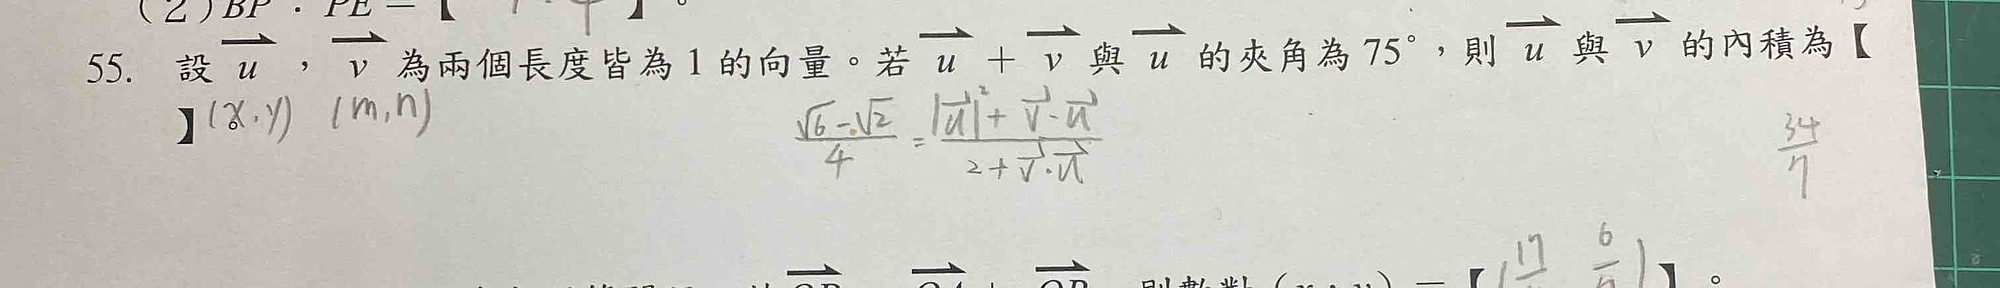 (2) BP · PE = 【 】。
55. 設 u , v 為兩個長度皆為 1 的向量。若 u + v 與 u 的夾角為 75°,則 u 與 v 的內積為【
】(x,y) (m,n)
(√6-√2)/4 = (|u|²+v·u)/(2+v·u)
34/7